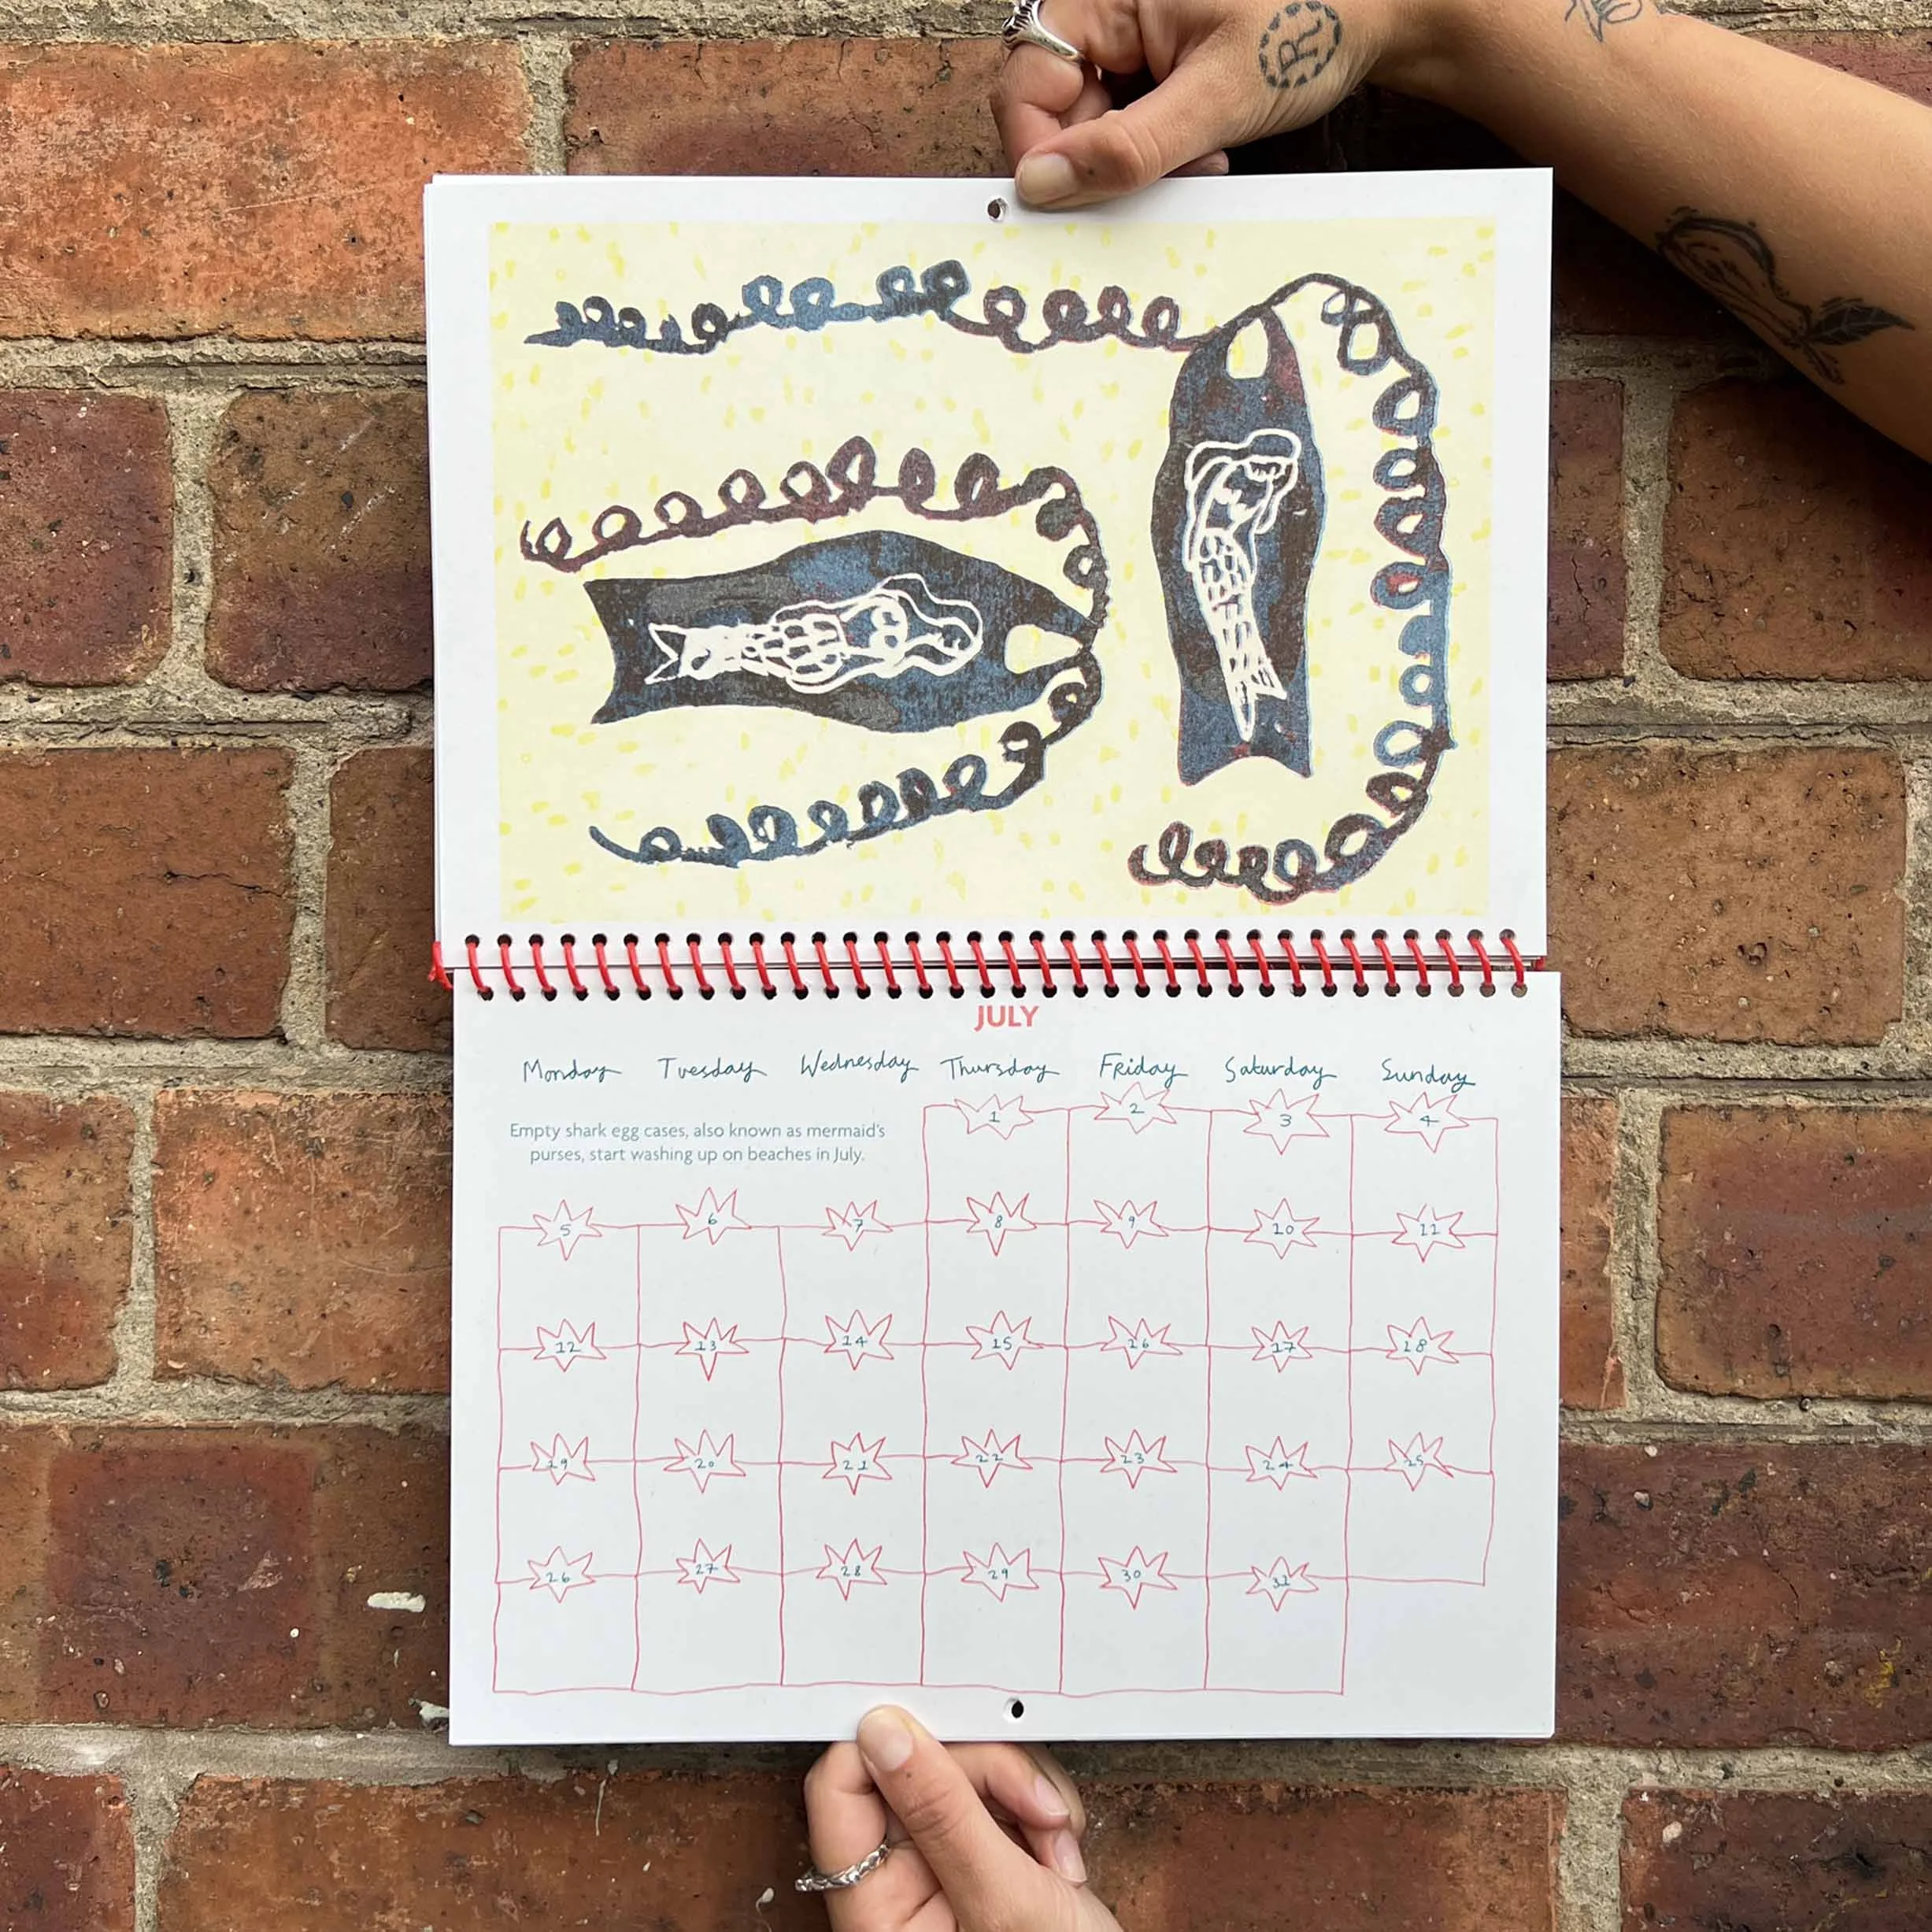 R
JULY
Monday Tuesday Wednesday Thursday Friday Saturday Sunday
Empty shark egg cases, also known as mermaid's
purses, start washing up on beaches in July.
1 2 3 4
5 6 7 8 9 10 11
12 13 14 15 16 17 18
19 20 21 22 23 24 25
26 27 28 29 30 31